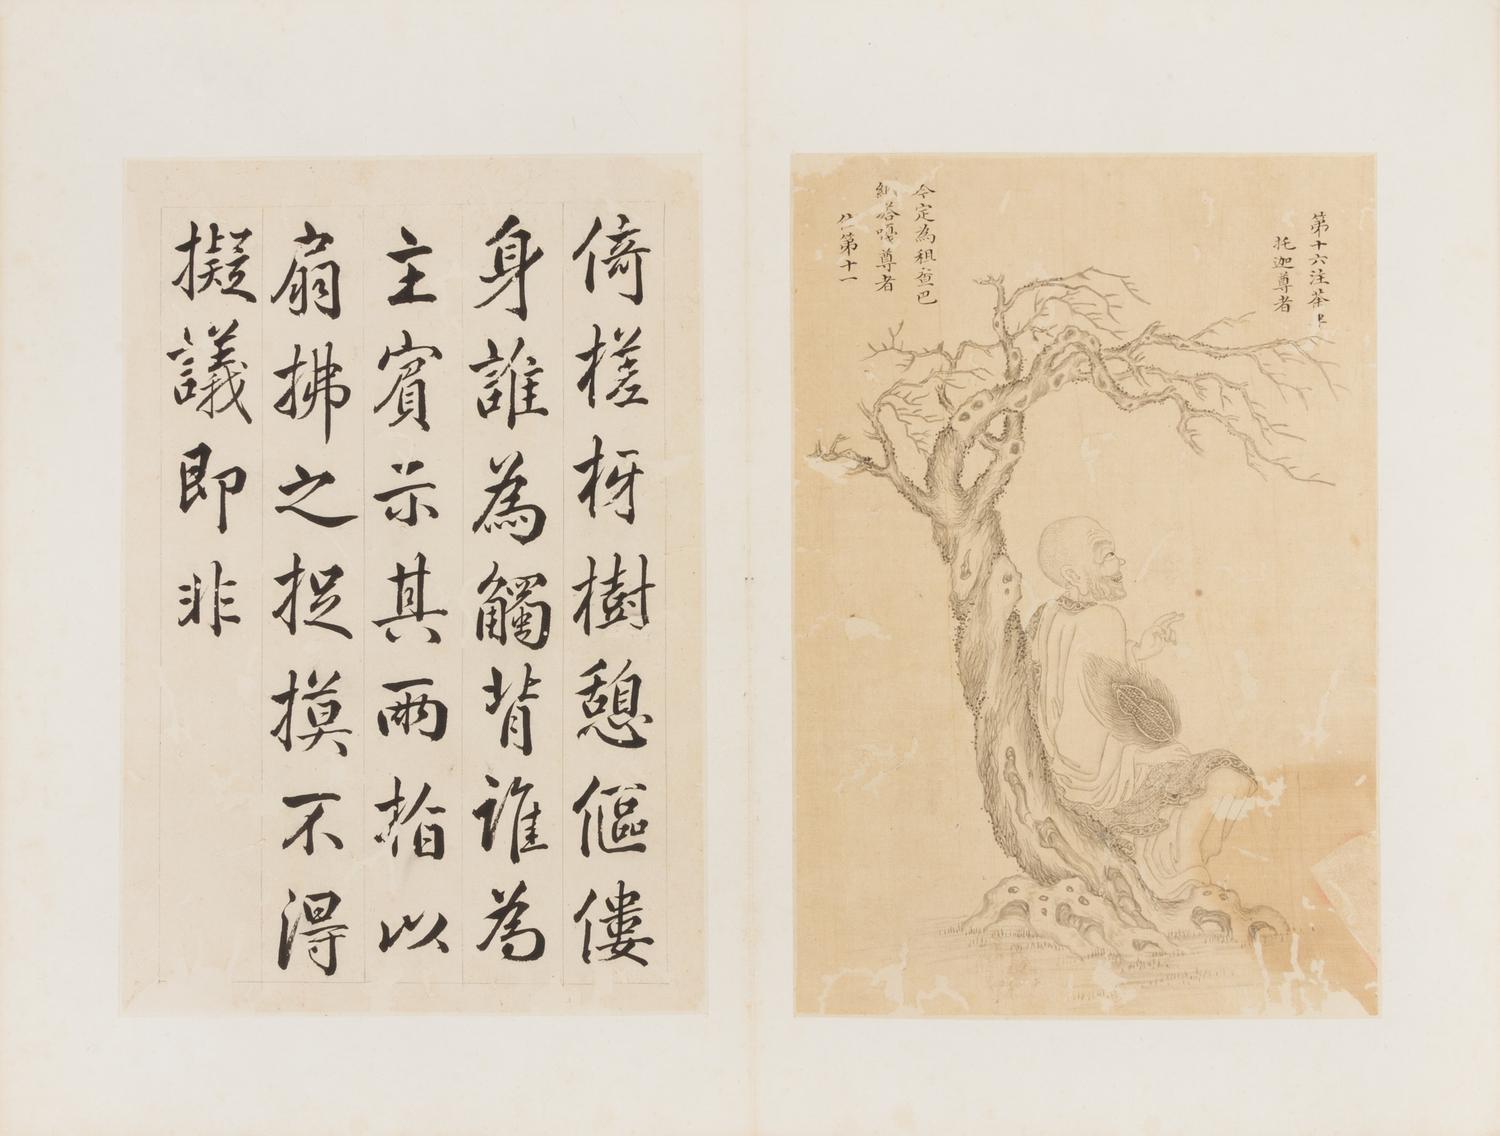 倚槎枒樹憩傴僂
身誰為觸背誰為
主賓示其兩指以
扇拂之捉摸不得
擬議即非
第十六注茶
托迦尊者
今定為租查巴
納塔嘎尊者
位第十一